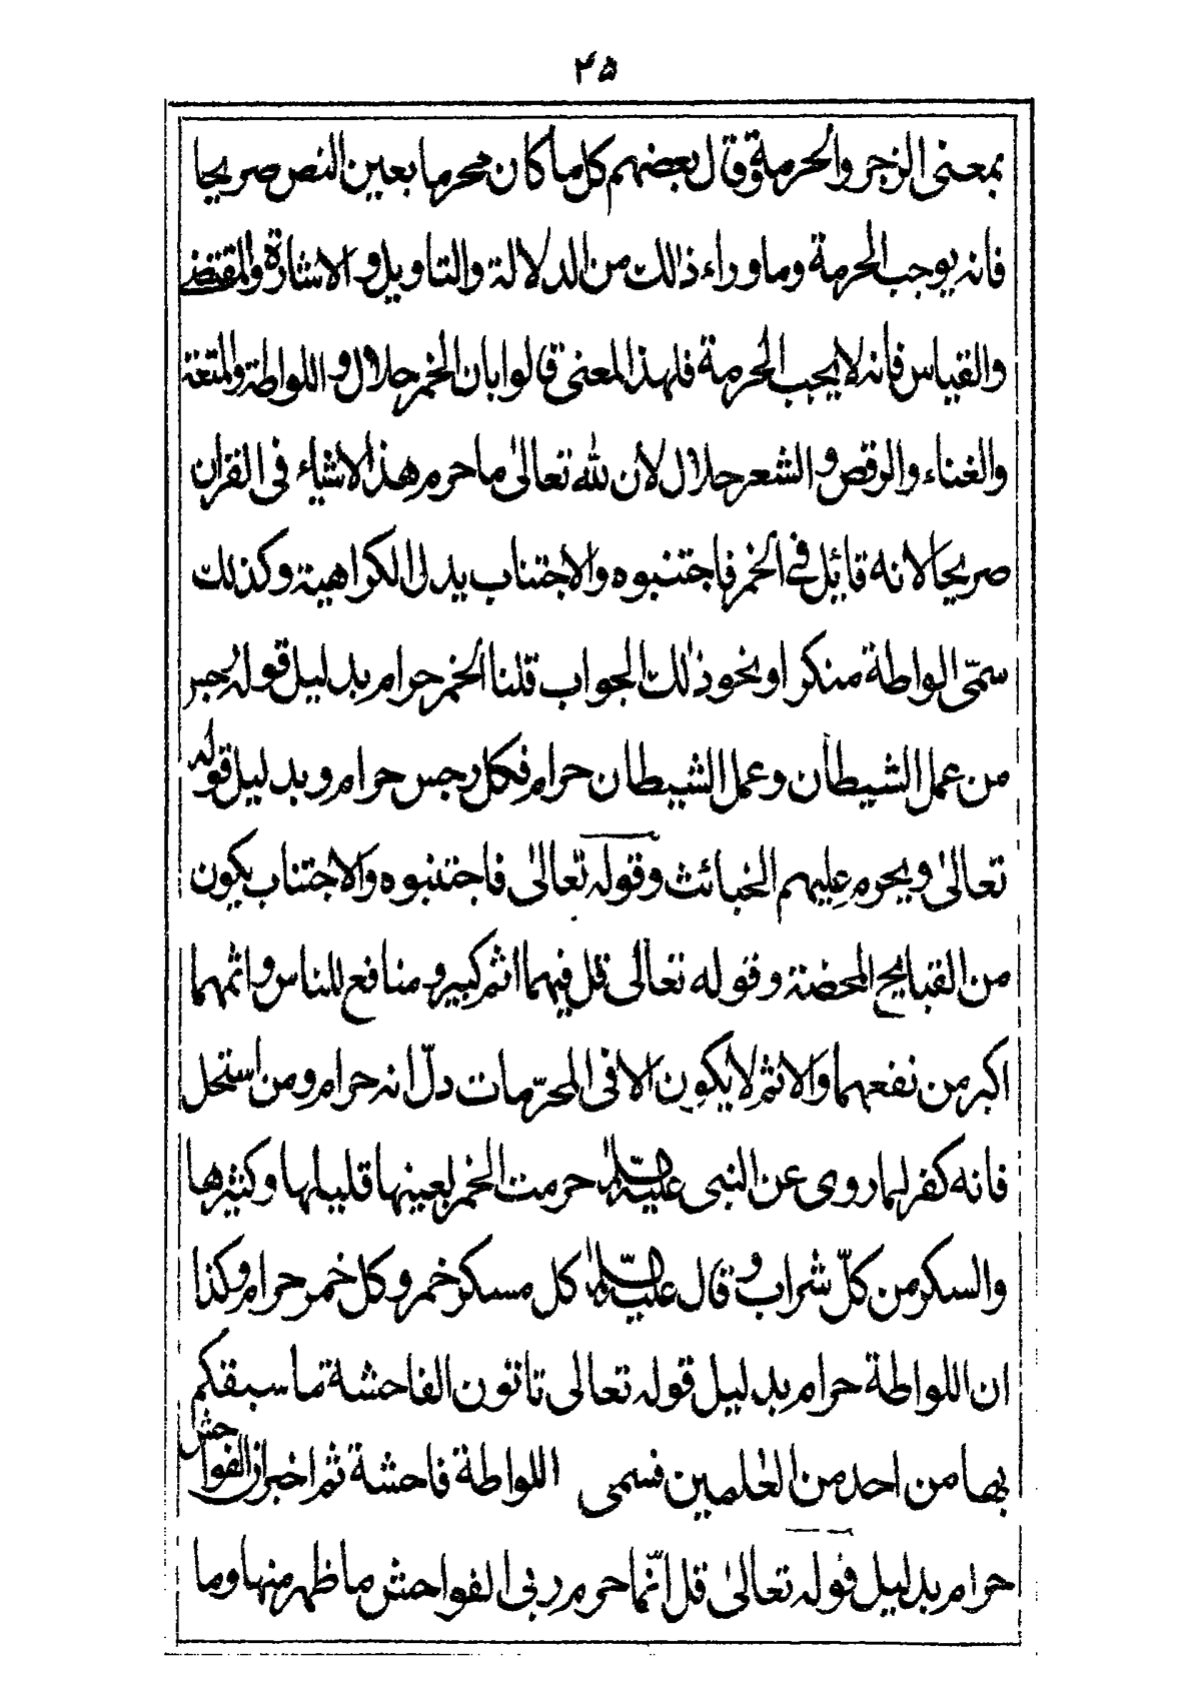 ٢٥
بمعنى الزجر والحرمة وقال بعضهم كل ما كان محرما بعين النص صريحا
فانه يوجب الحرمة وما وراء ذالك من الدلالة والتاويل و الاشارة والمقتضى
والقياس فانه لا يجب الحرمة فلهذا المعنى قالوا بان الخمر حلال و اللواطة والمتعة
والغناء والرقص و الشعر حلال لان لله تعالىٰ ما حرم هذا الاشياء فى القران
صريحا لانه قائل فے الخمر فاجتنبوه والاجتناب يدل الكراهية وكذلك
سمّى الواطة منكرا ونحو ذٰلك الجواب قلنا الخمر حرام بدليل قوله رجس
من عمل الشيطان وعمل الشيطان حرام فكل رجس حرام و بدليل قوله
تعالىٰ ويحرم عليهم الخبائث وقوله تعالىٰ فاجتنبوه والاجتناب يكون
من القبايح المحضة وقوله تعالى قل فيهما اثم كبير و منافع للناس و اثمهما
اكبر من نفعهما والاثم لا يكون الا فى المحرّمات دلّ انه حرام ومن استحل
فانه كفر لما روى عن النبى عليه السّلام حرمت الخمر لعينها قليلها وكثيرها
والسكر من كلّ شراب و قال عليه السّلام كل مسكر خمر وكل خمر حرام وكذا
ان اللواطة حرام بدليل قوله تعالى تاتون الفاحشة ما سبقكم
بها من احد من العٰلمين فسمى اللواطة فاحشة ثم اخبر ان الفواحش
حرام بدليل قوله تعالىٰ قل انّما حرم ربى الفواحش ما ظهر منها وما